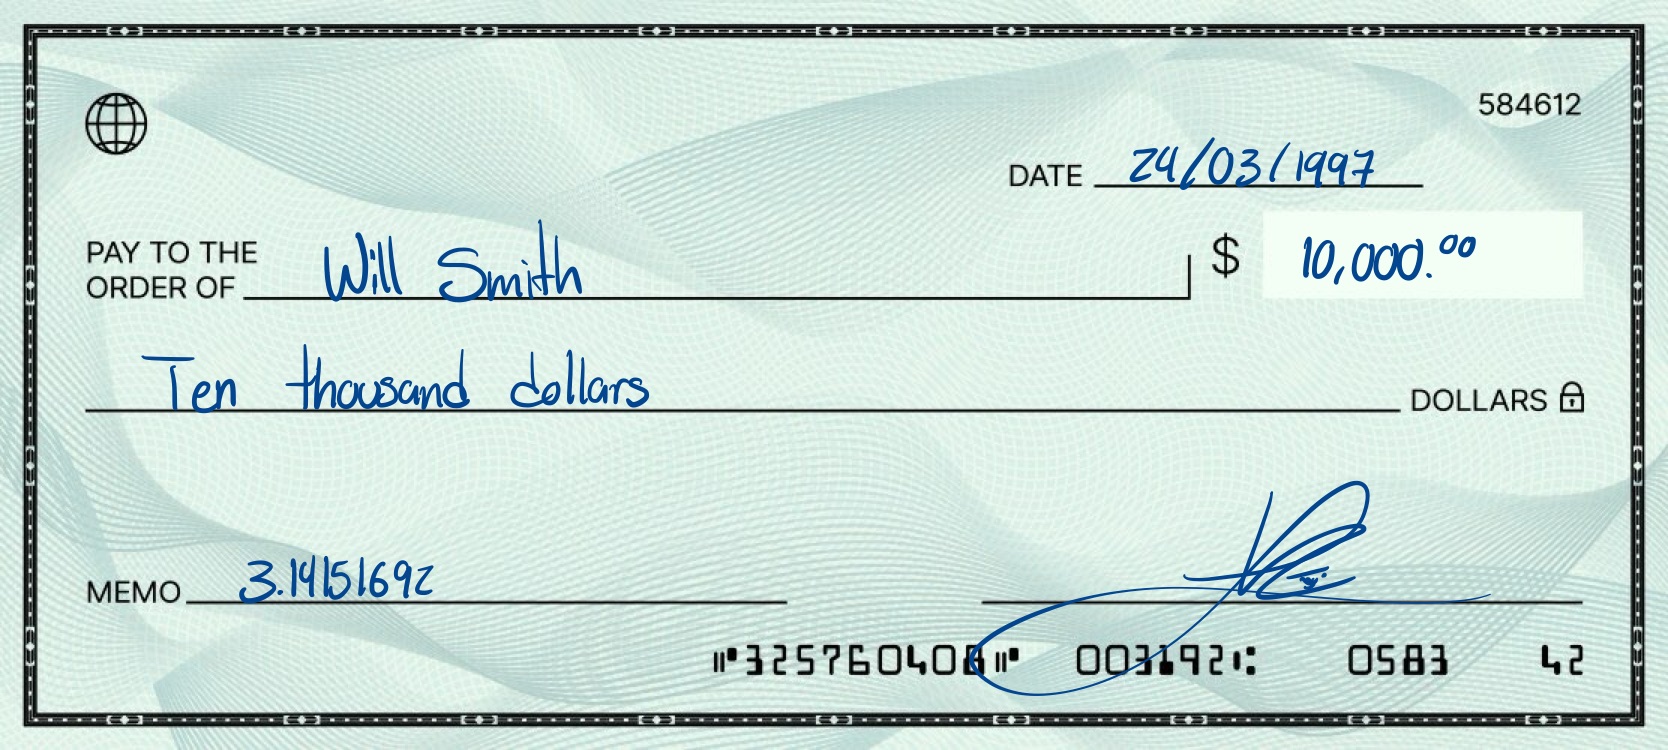 584612
DATE 24/03/1997
PAY TO THE
ORDER OF Will Smith $ 10,000.00
Ten thousand dollars DOLLARS
MEMO 3.14151692
⑈325760408⑈ 003692⑆ 0583 42